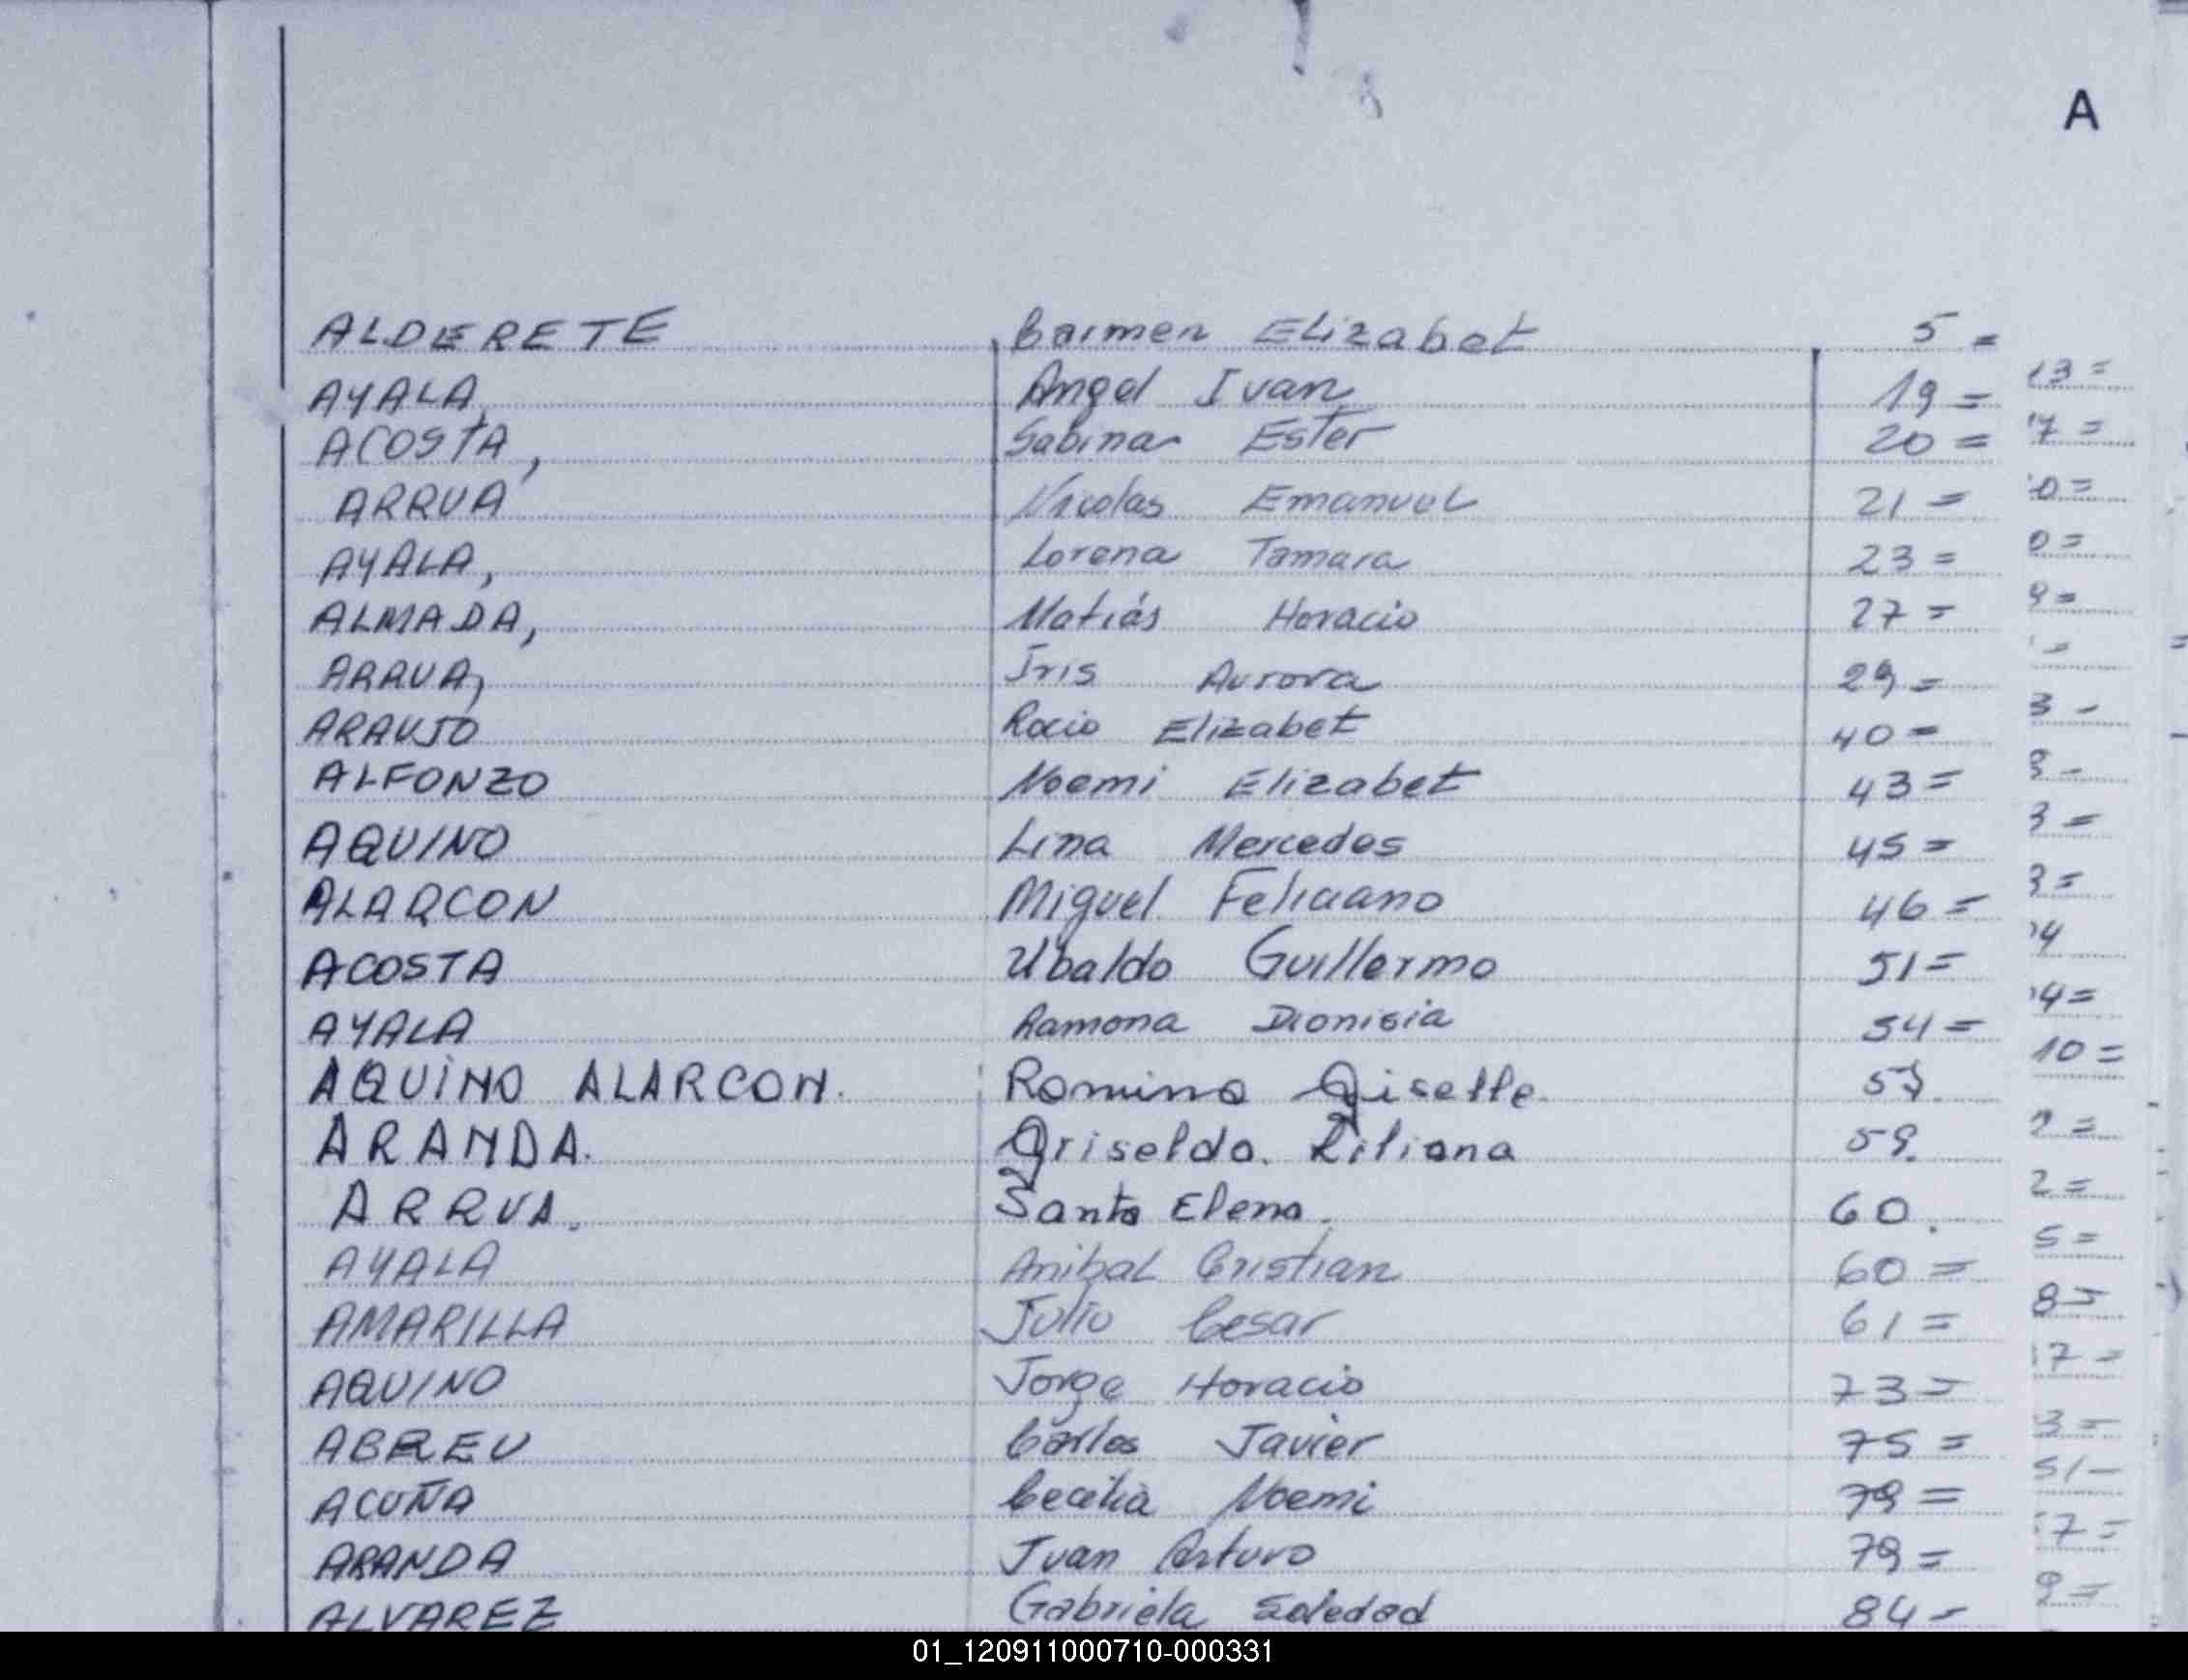 A
ALDERETE Carmen Elizabet 5 =
AYALA, Angel Ivan 19 = 13 =
ACOSTA, Sabina Ester 20 = 7 =
ARRUA Nicolas Emanuel 21 = 0 =
AYALA, Lorena Tamara 23 = 0 =
ALMADA, Matiás Horacio 27 = 9 =
ARRUA, Iris Aurora 29 =
ARAUJO Rocio Elizabet 40 = 3 -
ALFONZO Noemi Elizabet 43 =
AQUINO Lina Mercedes 45 = 3 =
ALARCON Miguel Feliciano 46 = 3 =
ACOSTA Ubaldo Guillermo 51 = 4
AYALA Ramona Dionisia 54 = 4 =
AQUINO ALARCON. Romina Giselle. 10 =
ARANDA. Griselda. Liliana 59. 2 =
ARRUA. Santa Elena. 60. 2 =
AYALA Anibal Cristian 60 = 5 =
AMARILLA Julio Cesar 61 = 8 =
AQUINO Jorge Horacio 73 = 17 =
ABREU Carlos Javier 75 = 3 =
ACUÑA Cecilia Noemi 79 = 51 -
ARANDA Juan Arturo 79 = 7 =
ALVAREZ Gabriela Soledad 84 - 9 =
01_120911000710-000331